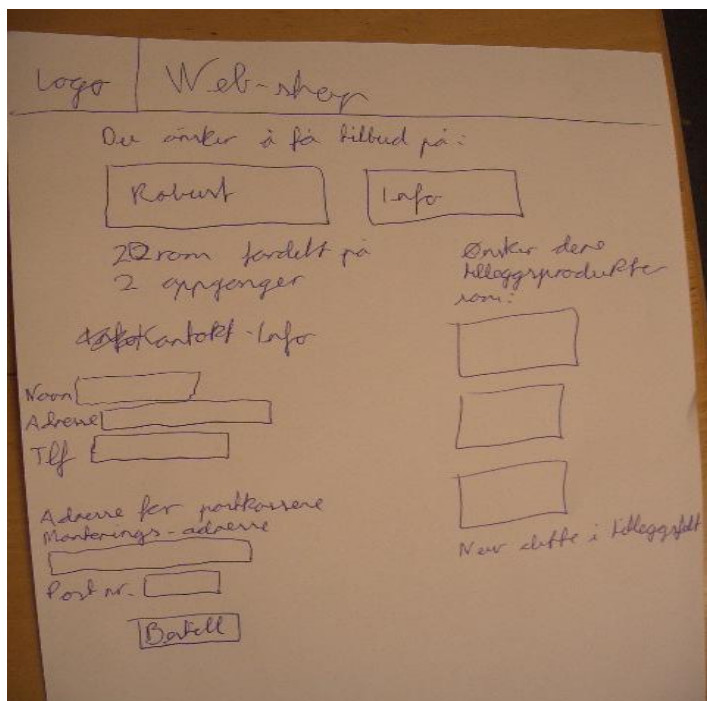 Logo
Web-shop
Du ønsker å få tilbud på:
Robust
Info
22 rom fordelt på
2 oppganger
Kontakt-Info
Navn
Adresse
Tlf
Adresse for postkassene
Monterings-adresse
Post nr.
Bestill
Ønsker dere
tilleggsprodukter
som:
Nevn dette i tilleggsfelt